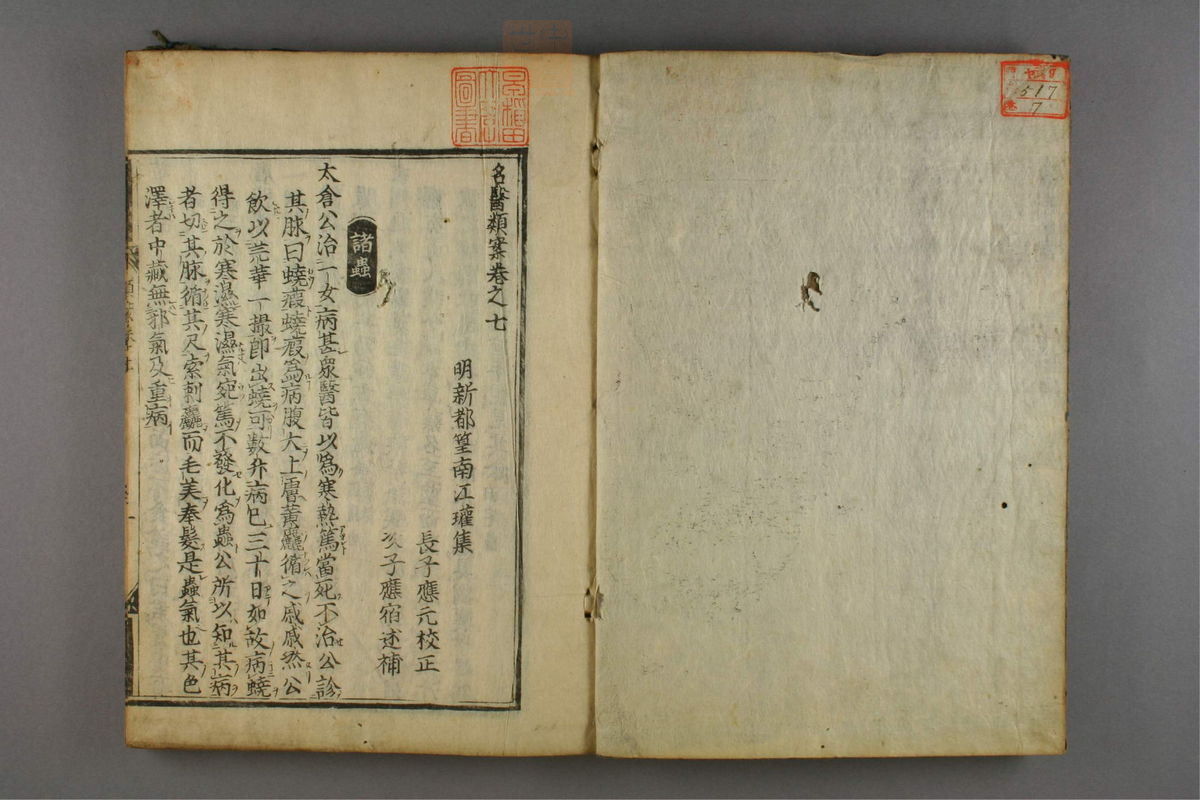 名醫類案卷之七
明新都篁南江瓘集
長子應元校正
次子應宿述補
諸蟲
太倉公治一女病甚衆醫皆以爲寒熱篤當死不治公診
其脉曰蟯瘕蟯瘕爲病腹大上膚黄麤循之戚戚然公
飲以芫華一撮即出蟯可數升病已三十日如故病蟯
得之於寒濕寒濕氣宛篤不發化爲蟲公所以知其病
者切其脉循其尺索刺麤而毛美奉髮是蟲氣也其色
澤者中藏無邪氣及重病
517
7